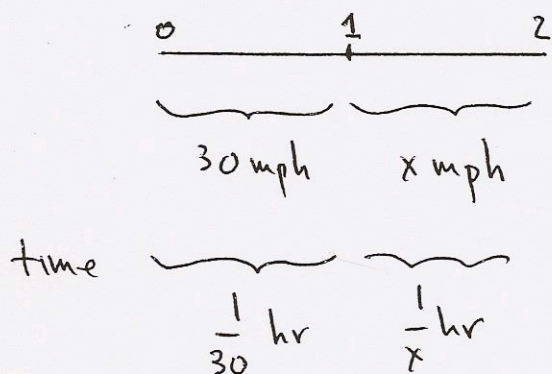 0 1 2
30 mph x mph
time
1/30 hr 1/x hr